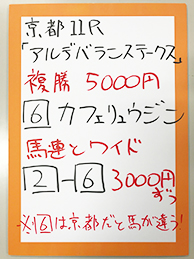 京都11R
「アルデバランステークス」
複勝 5000円
6 カフェリュウジン
馬連とワイド
2-6 3000円ずつ
※6は京都だと馬が違う!